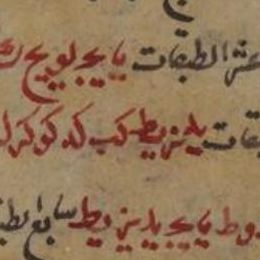 عشر الطبقات يا يج يو يح
يد يز يط كب كد كو كز
و ط يا يج يد يز يط سابع